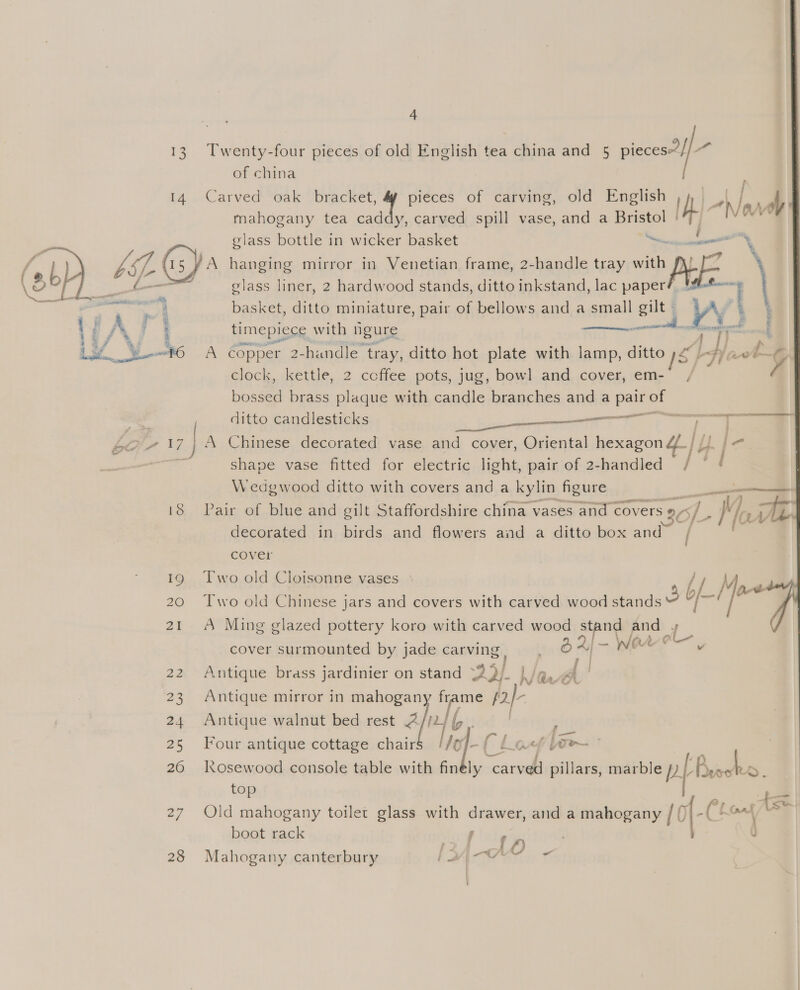 4
13 Twenty-four pieces of old English tea china and 5 pieces
of china
14 Carved oak bracket, pieces of carving, old English
mahogany tea caddy, carved spill vase, and a Bristol
glass bottle in wicker basket
15 A hanging mirror in Venetian frame, 2-handle tray with
glass liner, 2 hardwood stands, ditto inkstand, lac paper
basket, ditto miniature, pair of bellows and a small gilt
timepiece with figure
16 A copper 2-handle tray, ditto hot plate with lamp, ditto
clock, kettle, 2 coffee pots, jug, bowl and cover, em-
bossed brass plaque with candle branches and a pair of
ditto candlesticks
17 A Chinese decorated vase and cover, Oriental hexagon
shape vase fitted for electric light, pair of 2-handled
Wedgwood ditto with covers and a kylin figure
18 Pair of blue and gilt Staffordshire china vases and covers
decorated in birds and flowers and a ditto box and
cover
19 Two old Cloisonne vases
20 Two old Chinese jars and covers with carved wood stands
21 A Ming glazed pottery koro with carved wood stand and
cover surmounted by jade carving
22 Antique brass jardinier on stand
23 Antique mirror in mahogany frame 12/-
24 Antique walnut bed rest
25 Four antique cottage chairs
26 Rosewood console table with finely carved pillars, marble
top
27 Old mahogany toilet glass with drawer, and a mahogany
boot rack
28 Mahogany canterbury